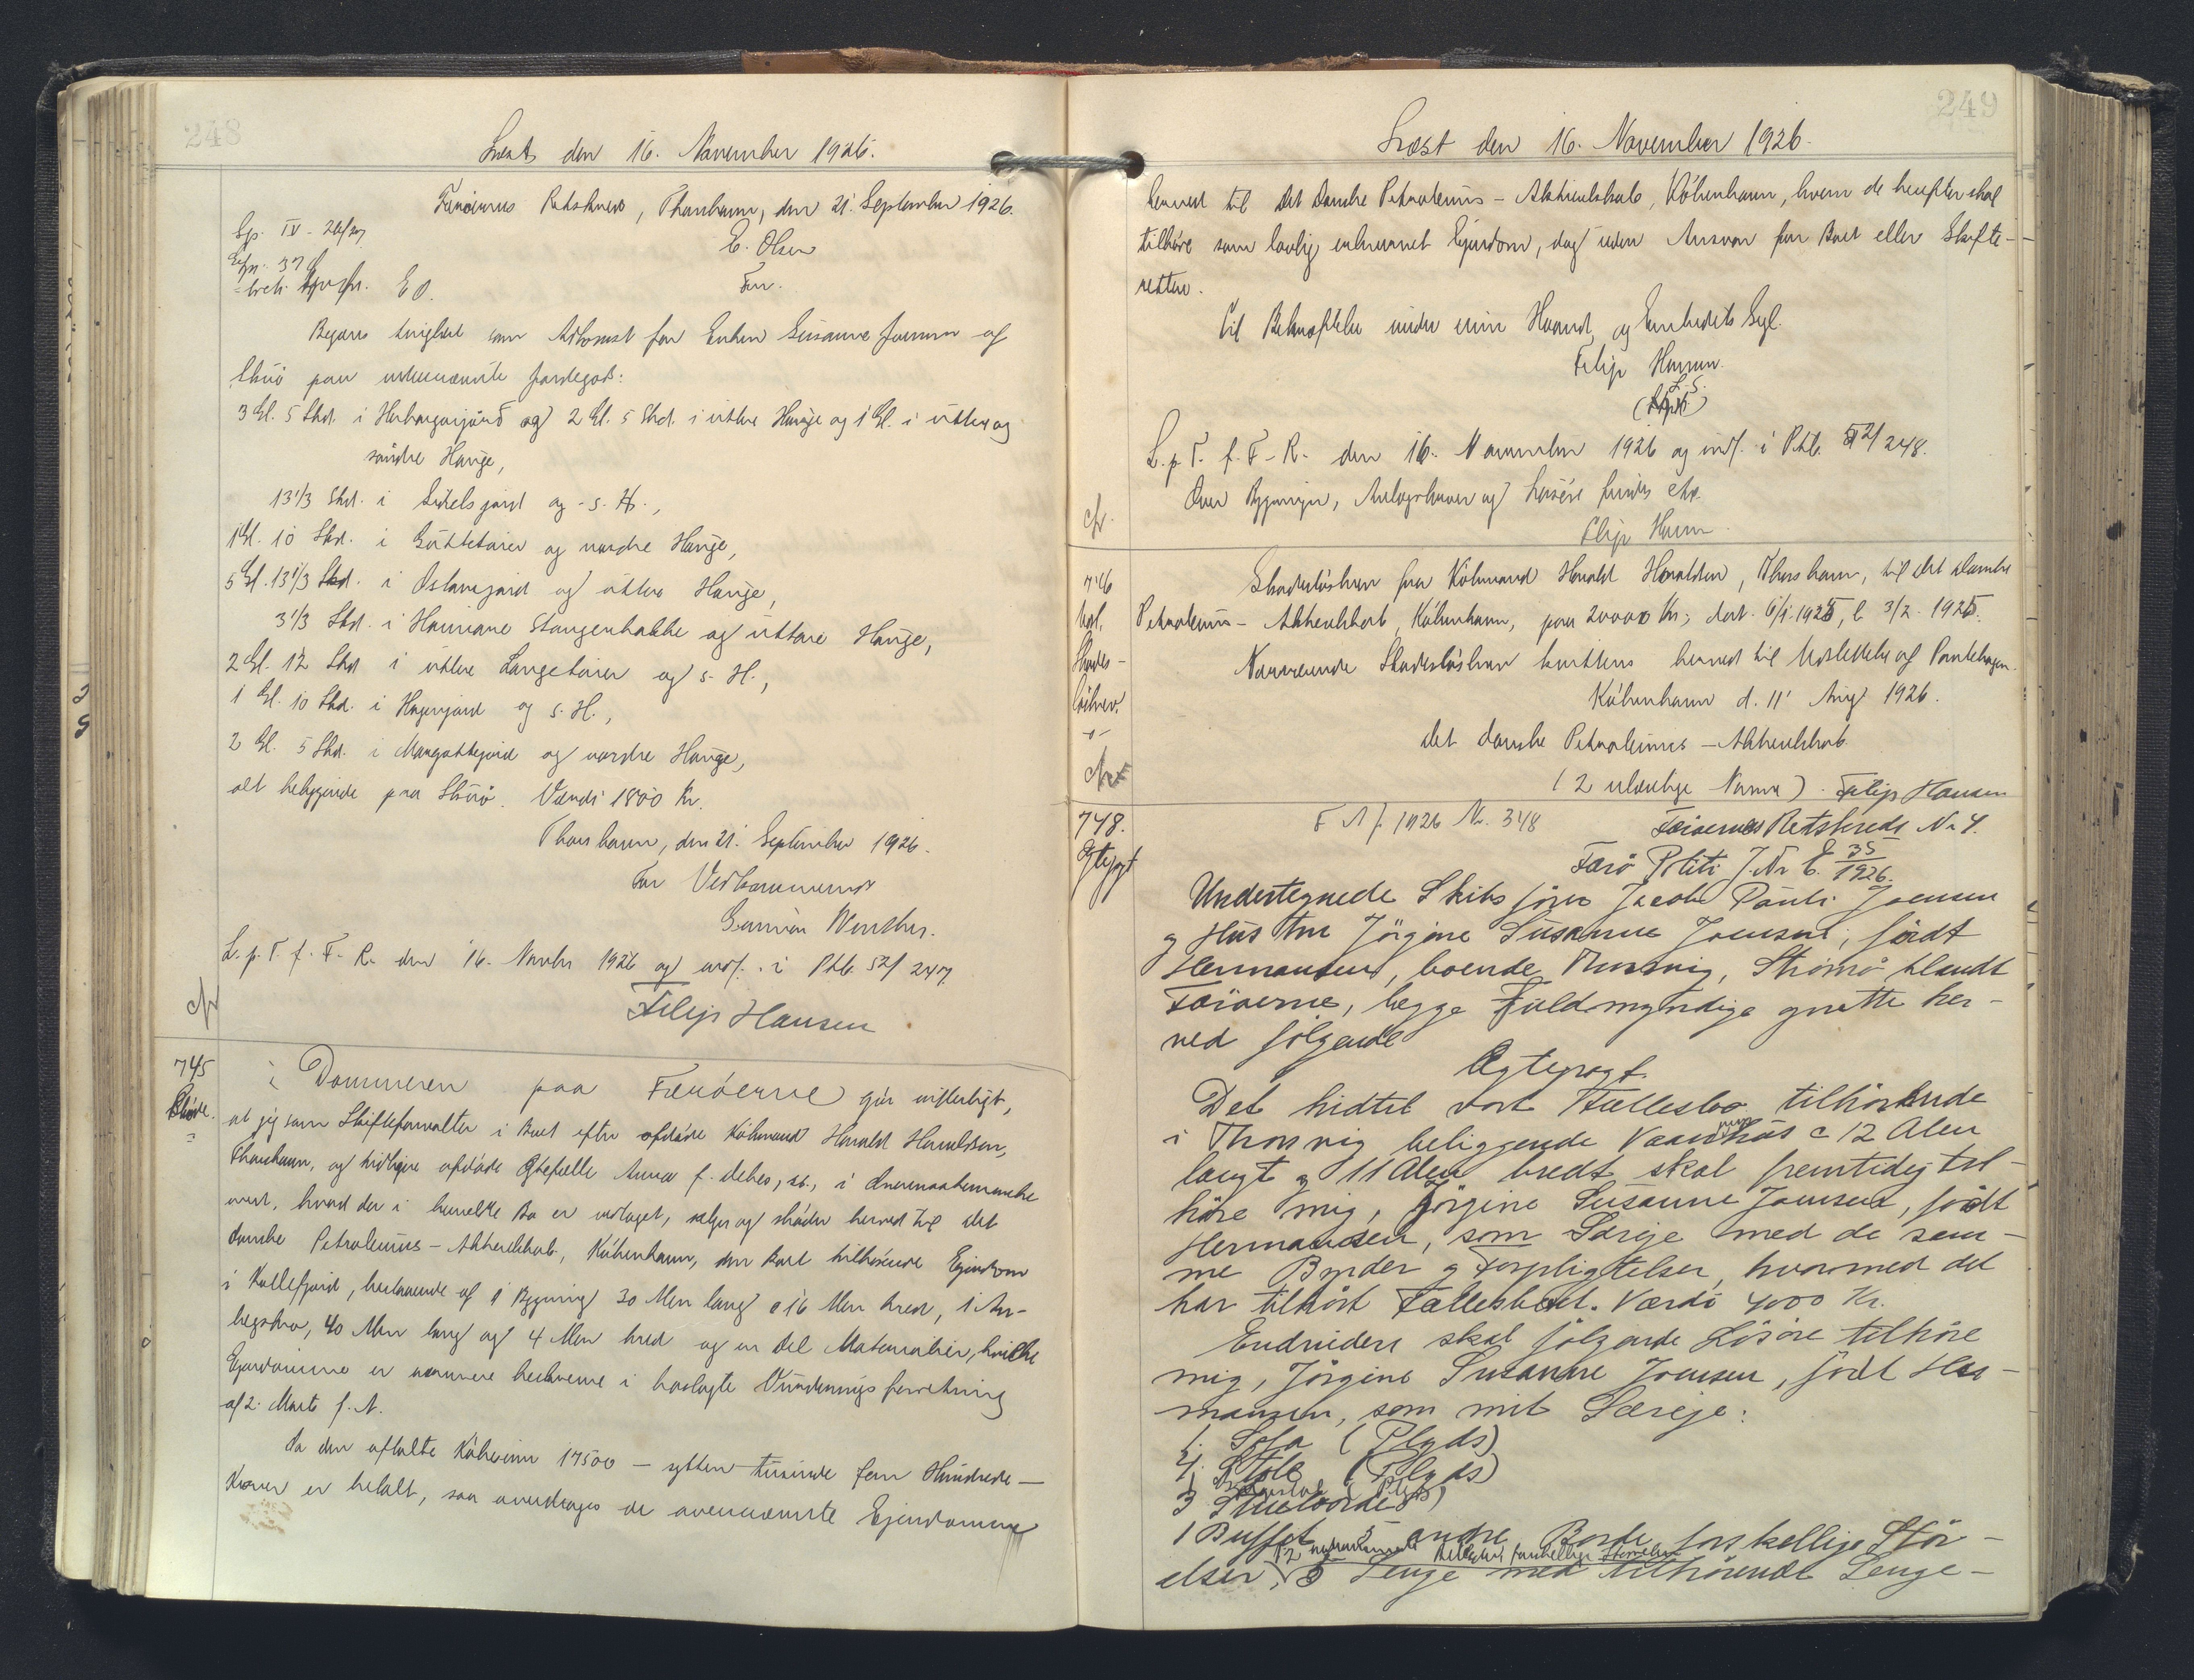 248
Læst den 16. November 1926.
Færöernes Retskreds, Thorshavn, den 21. September 1926.
E. Olsen
Fm.
Sp. IV - 26/27
Begæres tinglæst som Adkomst for Enken Susanne Joensen af
Skuö paa nedennævnte Jordegods:
3 Gl. 5 Skd. i Herbargarjörd og 2 Gl. 5 Skd. i uttara Hauge og 1 Gl. i uttara og
söndre Hauge,
13 1/3 Skd. i jord og s. H.,
1 Gl. 10 Skd. i og nordre Hauge,
5 Gl. 13 1/3 Skd. i og uttara Hauge,
3 1/3 Skd. i Stangenhakke og uttara Hauge,
2 Gl. 12 Skd. i uttara Langetarir og s. H.,
1 Gl. 10 Skd. i Hagenjord og s. H.,
2 Gl. 5 Skd. i og nordre Hauge,
alt beliggende paa Skuö. Værdi 1800 Kr.
Thorshavn, den 21. September 1926.
For Vedkommende
L. p. T. f. F. R. den 16. Novbr 1926 og indf. i Ptb. 52/247
Filip Hansen
cfr
745
Sköde.
i Dommeren paa Færöerne gör vitterligt,
at jeg som Skifteforvalter i Boet efter afdöde Köbmand Harald Haraldsen,
Thorshavn, og tidligere afdöde Ægtefælle Anna f. Debes, sk., i Overensstemmelse
med, hvad der i bemeldte Bo er vedtaget, sælger og sköder herved til Det
danske Petroleums-Aktieselskab, Köbenhavn, den Boet tilhörende Ejendom
i Kollefjord, bestaaende af 1 Bygning 30 Alen lang o 16 Alen bred, 1 An-
lægsbro, 40 Alen lang og 4 Alen bred og en Del Materialier, hvilke
Ejendomme er nærmere beskrevne i hoslagte Vurderingsforretning
af 2. Marts f. A.
Da den aftalte Köbesum 17500 - sytten tusinde fem Hundrede -
Kroner er betalt, saa overdrages de ovennævnte Ejendomme
249
Læst den 16. November 1926.
herved til Det Danske Petroleums-Aktieselskab, Köbenhavn, hvem de herefter skal
tilhöre som lovlig erhvervet Ejendom, dog uden Ansvar for Boet eller Skifte-
retten.
Til Bekræftelse under min Haand og Embedets Segl.
Filip Hansen.
L. S.
L. p. T. f. F. R. den 16. November 1926 og indf. i Ptb. 52/248.
Over Bygninger, Anlægsbroer og Lösöre findes
cfr.
Filip Hansen
746
Skades-
lösbrev.
Skadeslösbrev fra Köbmand Harald Haraldsen, Thorshavn, til det danske
Petroleums-Aktieselskab, Köbenhavn, paa 20000 Kr; dat. 6/1 1925, l. 3/2 1925.
Nærværende Skadeslösbrev kvitteres herved til Udslettelse af Pantebogen.
Köbenhavn d. 11' Aug 1926.
det danske Petroleums-Aktieselskab
(2 ulæselige Navne). Filip Hansen
748.
Ægtepagt
F A J. 1926 No. 348
Færöernes Retskreds No 4.
Færö Politi J. Nr E. 35/1926.
Undertegnede Skibsförer Jacob Pauli Joensen
og Hustru Jörgine Susanne Joensen, födt
Hermansen, boende Thorsvig, Strömö blandt
Færöerne, begge Fuldmyndige oprette her-
ved fölgende
Ægtepagt.
Det hidtil vort Fællesbo tilhörende
i Thorsvig beliggende Vaaningshus c 12 Alen
langt og 11 Alen bredt skal fremtidig til-
höre mig, Jörgine Susanne Joensen, födt
Hermansen, som Særeje med de sam-
me Byrder og Forpligtelser, hvormed det
har tilhört Fællesboet. Værdi 4000 Kr.
Endvidere skal fölgende Lösöre tilhöre
mig, Jörgine Susanne Joensen, födt Her-
mansen, som mit Særeje:
1. Sofa (Plyds)
4. Stole (Plyds)
3 Stueborde
1 Buffet 5 andre Borde forskellige Stör-
elser, 3 Senge med tilhörende Senge-